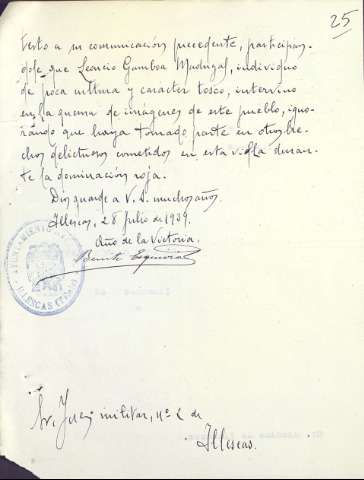 25
testo a su comunicación precedente, participan-
dole que Leoncio Gamboa Madrigal, individuo
de poca cultura y caracter tosco, intervino
en la quema de imágenes de este pueblo, igno-
rándo que haya tomado parte en otros he-
chos delictivos cometidos en esta villa duran-
te la dominación roja.
Dios guarde a V. S. muchos años
Illescas, 28 julio de 1939.
Año de la Victoria.
Benito Esquivias
AYUNTAMIENTO
ILLESCAS (TOLEDO)
Sr. Juez militar, nº 2 de
Illescas.